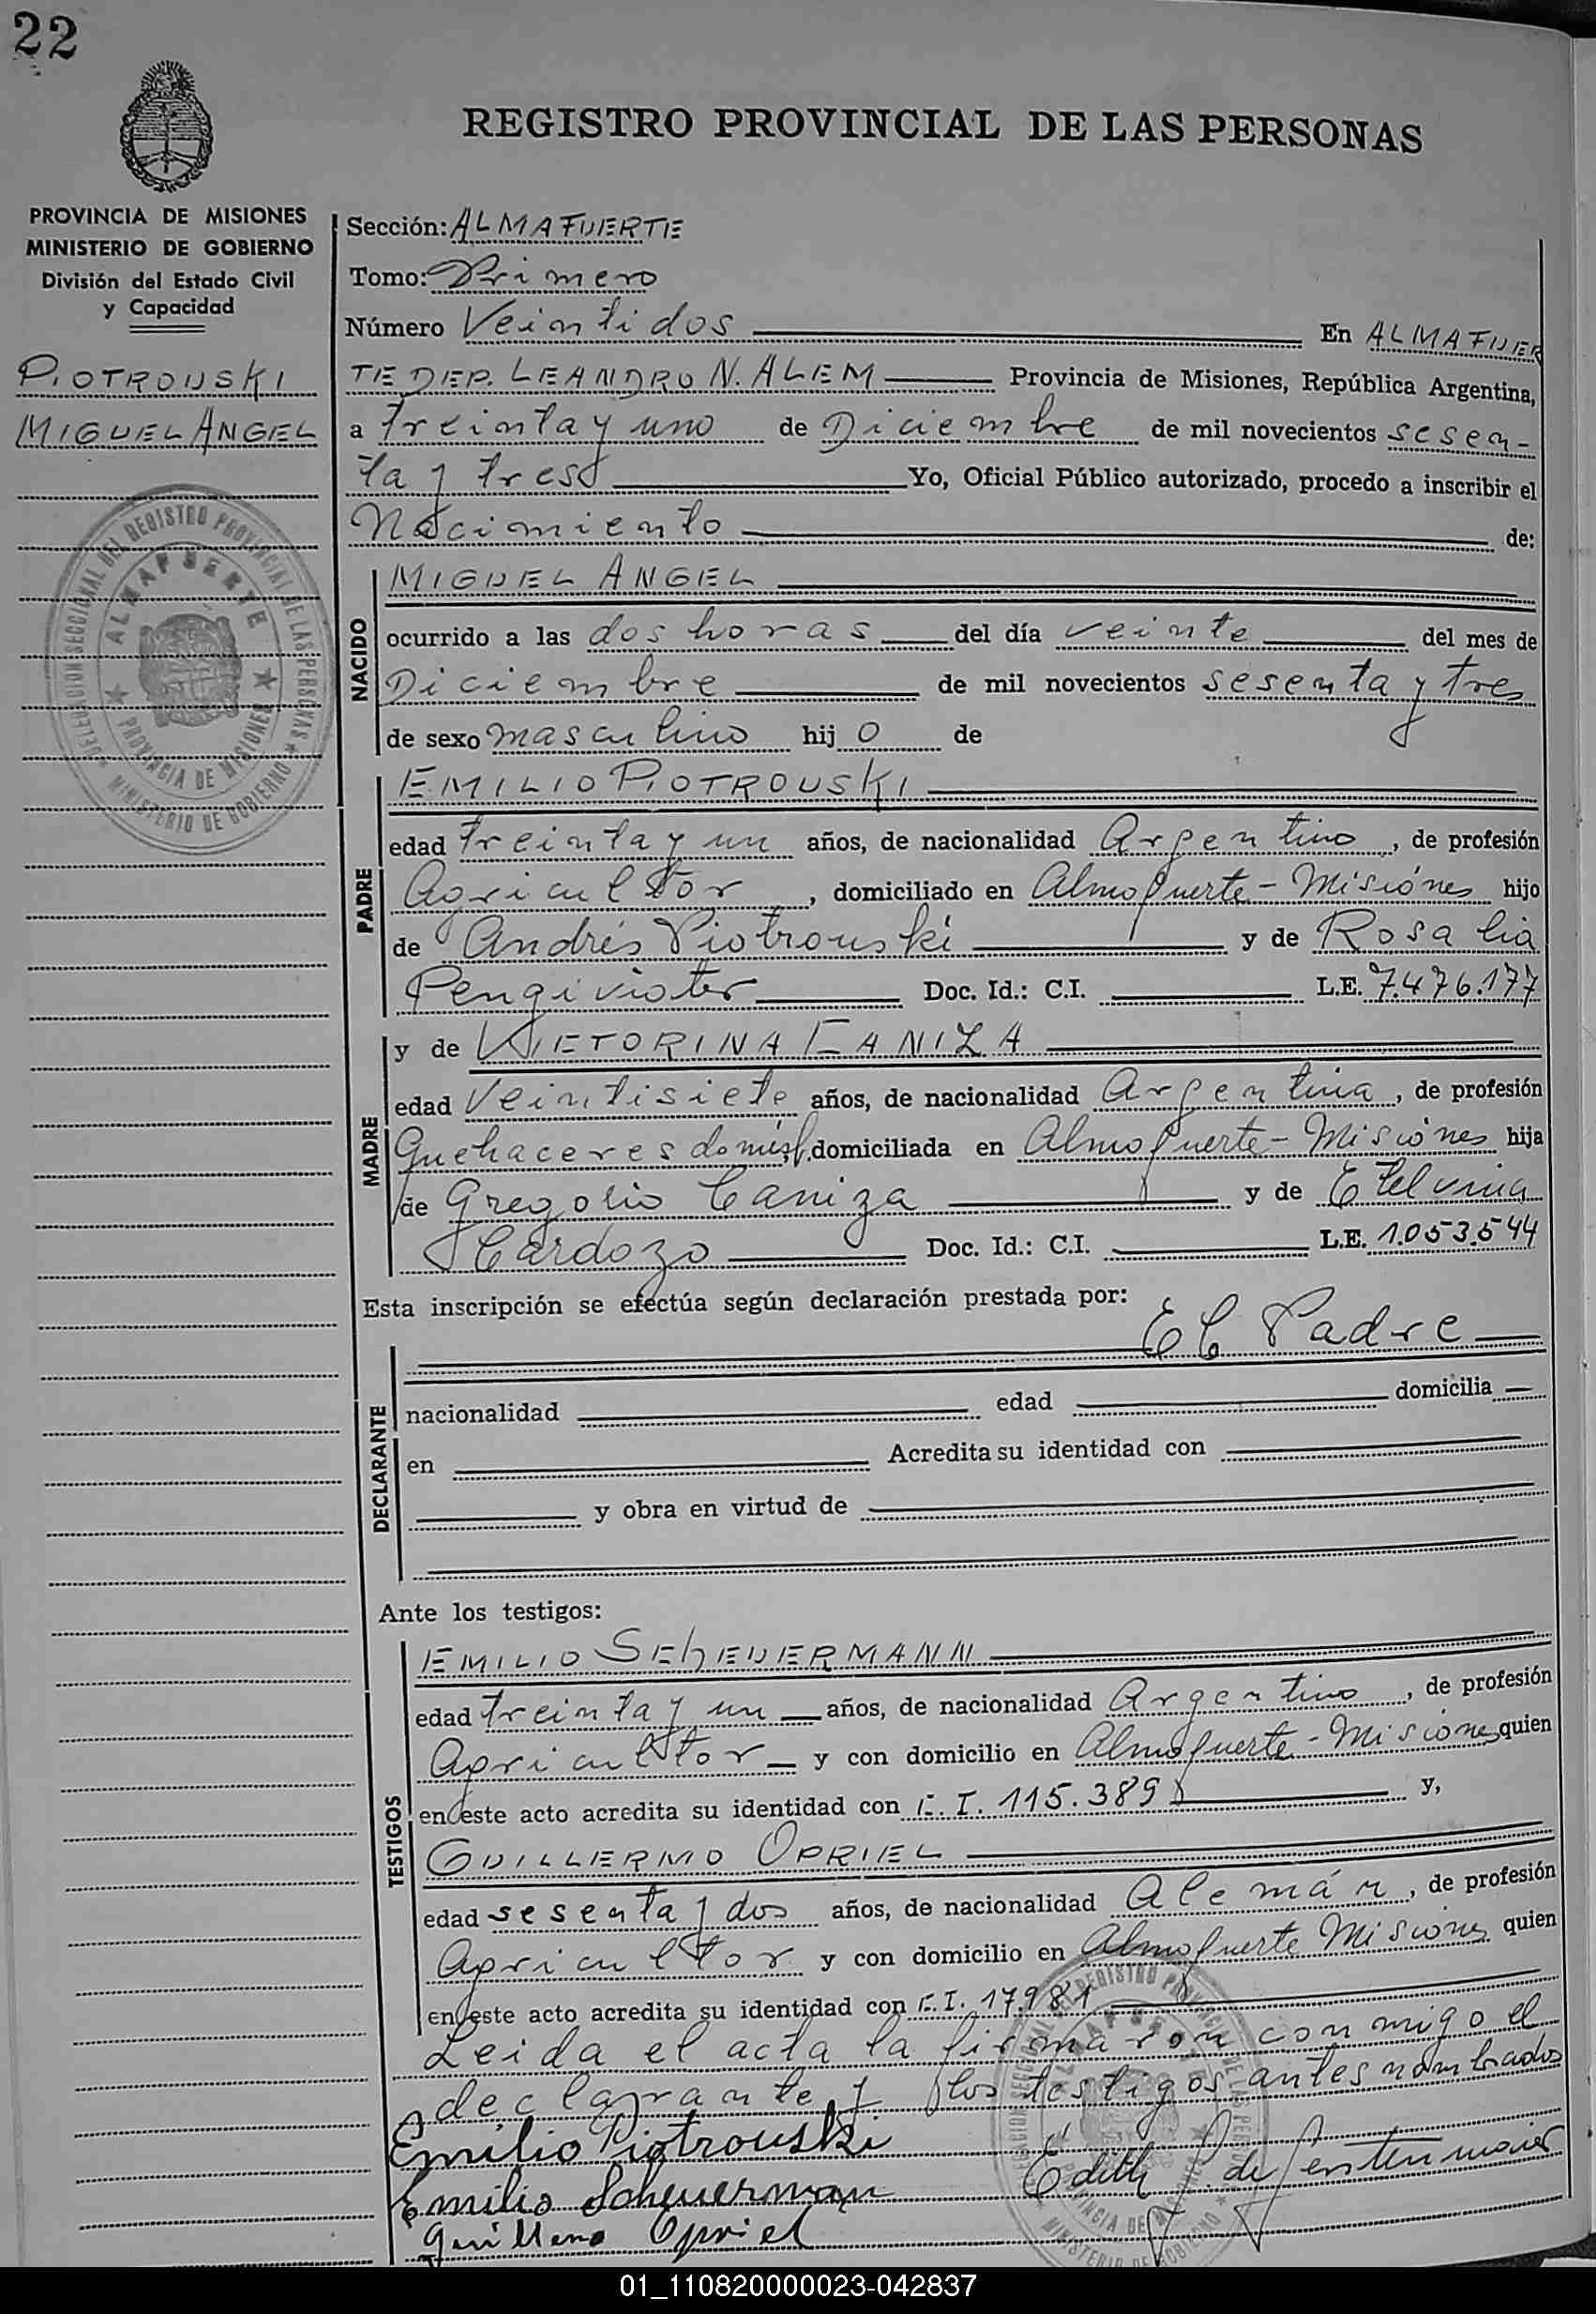 22
REGISTRO PROVINCIAL DE LAS PERSONAS
PROVINCIA DE MISIONES
MINISTERIO DE GOBIERNO
División del Estado Civil
y Capacidad
PIOTROUSKI
MIGUEL ANGEL
Sección: ALMAFUERTE
Tomo: Primero
Número Veintidos En ALMAFUER
TE DEP. LEANDRO N. ALEM Provincia de Misiones, República Argentina,
a treinta y uno de Diciembre de mil novecientos sesen-
ta y tres Yo, Oficial Público autorizado, procedo a inscribir el
Nacimiento de:
NACIDO
MIGUEL ANGEL
ocurrido a las dos horas del día veinte del mes de
Diciembre de mil novecientos sesenta y tres
de sexo masculino hijo de
PADRE
EMILIO PIOTROUSKI
edad treinta y un años, de nacionalidad Argentino, de profesión
Agricultor, domiciliado en Almafuerte - Misiones hijo
de Andrés Piotrouski y de Rosalia
Doc. Id.: C.I. L.E. 7.476.177
MADRE
y de VICTORINA CANIZA
edad Veintisiete años, de nacionalidad Argentina, de profesión
Quehaceres domést. domiciliada en Almafuerte - Misiones hija
de Gregorio Caniza y de Etelvina
Cardozo Doc. Id.: C.I. L.E. 1.053.544
Esta inscripción se efectúa según declaración prestada por:
DECLARANTE
El Padre
nacionalidad edad domicilia
en Acredita su identidad con
y obra en virtud de
Ante los testigos:
TESTIGOS
EMILIO SCHEUERMANN
edad treinta y un años, de nacionalidad Argentino, de profesión
Agricultor y con domicilio en Almafuerte - Misiones quien
en este acto acredita su identidad con C.I. 115.389 y,
GUILLERMO OPRIEL
edad sesenta y dos años, de nacionalidad Alemán, de profesión
Agricultor y con domicilio en Almafuerte Misiones quien
en este acto acredita su identidad con C.I. 17.981
Leida el acta la firmaron conmigo el
declarante y los testigos antes nombrados
Emilio Piotrouski
Emilio Scheuerman
Guillermo Opriel
Edith de
DELEGACION SECCIONAL DEL REGISTRO PROVINCIAL DE LAS PERSONAS
ALMAFUERTE
PROVINCIA DE MISIONES
MINISTERIO DE GOBIERNO
01_110820000023-042837